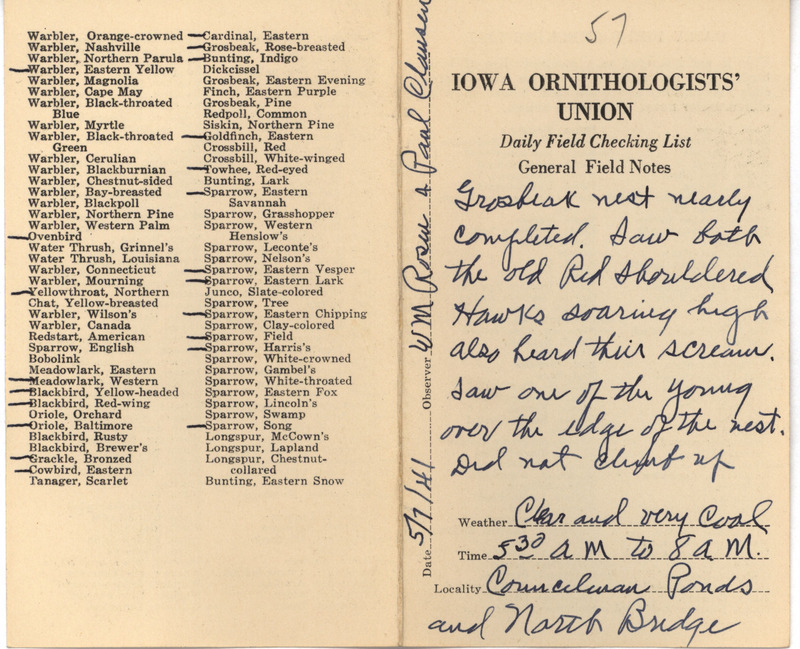 Warbler, Orange-crowned
Warbler, Nashville
Warbler, Northern Parula
Warbler, Eastern Yellow
Warbler, Magnolia
Warbler, Cape May
Warbler, Black-throated
Blue
Warbler, Myrtle
Warbler, Black-throated
Green
Warbler, Cerulian
Warbler, Blackburnian
Warbler, Chestnut-sided
Warbler, Bay-breasted
Warbler, Blackpoll
Warbler, Northern Pine
Warbler, Western Palm
Ovenbird
Water Thrush, Grinnel's
Water Thrush, Louisiana
Warbler, Connecticut
Warbler, Mourning
Yellowthroat, Northern
Chat, Yellow-breasted
Warbler, Wilson's
Warbler, Canada
Redstart, American
Sparrow, English
Bobolink
Meadowlark, Eastern
Meadowlark, Western
Blackbird, Yellow-headed
Blackbird, Red-wing
Oriole, Orchard
Oriole, Baltimore
Blackbird, Rusty
Blackbird, Brewer's
Grackle, Bronzed
Cowbird, Eastern
Tanager, Scarlet
Cardinal, Eastern
Grosbeak, Rose-breasted
Bunting, Indigo
Dickcissel
Grosbeak, Eastern Evening
Finch, Eastern Purple
Grosbeak, Pine
Redpoll, Common
Siskin, Northern Pine
Goldfinch, Eastern
Crossbill, Red
Crossbill, White-winged
Towhee, Red-eyed
Bunting, Lark
Sparrow, Eastern
Savannah
Sparrow, Grasshopper
Sparrow, Western
Henslow's
Sparrow, Leconte's
Sparrow, Nelson's
Sparrow, Eastern Vesper
Sparrow, Eastern Lark
Junco, Slate-colored
Sparrow, Tree
Sparrow, Eastern Chipping
Sparrow, Clay-colored
Sparrow, Field
Sparrow, Harris's
Sparrow, White-crowned
Sparrow, Gambel's
Sparrow, White-throated
Sparrow, Eastern Fox
Sparrow, Lincoln's
Sparrow, Swamp
Sparrow, Song
Longspur, McCown's
Longspur, Lapland
Longspur, Chestnut-
collared
Bunting, Eastern Snow
Date 5/7/41 Observer WM Rosen & Paul Clausen
57
IOWA ORNITHOLOGISTS'
UNION
Daily Field Checking List
General Field Notes
Grosbeak nest nearly
completed. Saw both
the old Red shouldered
Hawks soaring high
also heard their scream.
Saw one of the young
over the edge of the nest.
Did not climb up
Weather Clear and very Cool
Time 5 30 A M to 8 A M.
Locality Councilman Ponds
and North Bridge